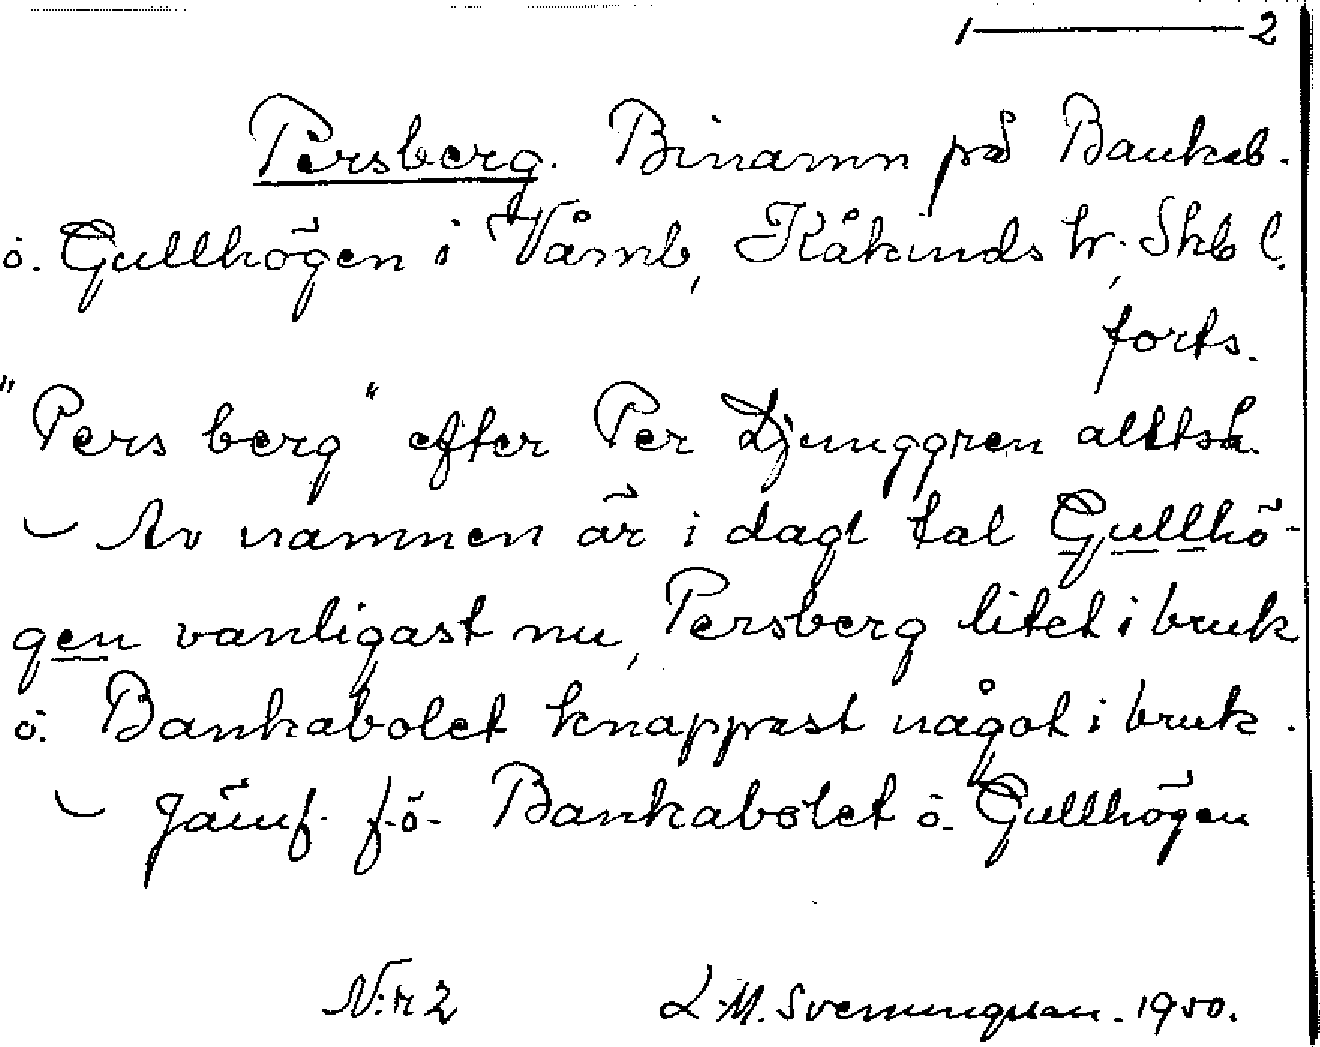 1 — 2
Persberg. Binamn på Bankab.
o. Gullhögen i Våmb, Kåkinds hr, Skb l.
forts.
"Pers berg" efter Per Ljunggren alltså.
– Av namnen är i dagl tal Gullhö-
gen vanligast nu, Persberg litet i bruk
o. Bankabolet knappast något i bruk.
– Jämf. f.ö. Bankabolet o. Gullhögen
N:r 2 L. M. Svenungsson. 1950.